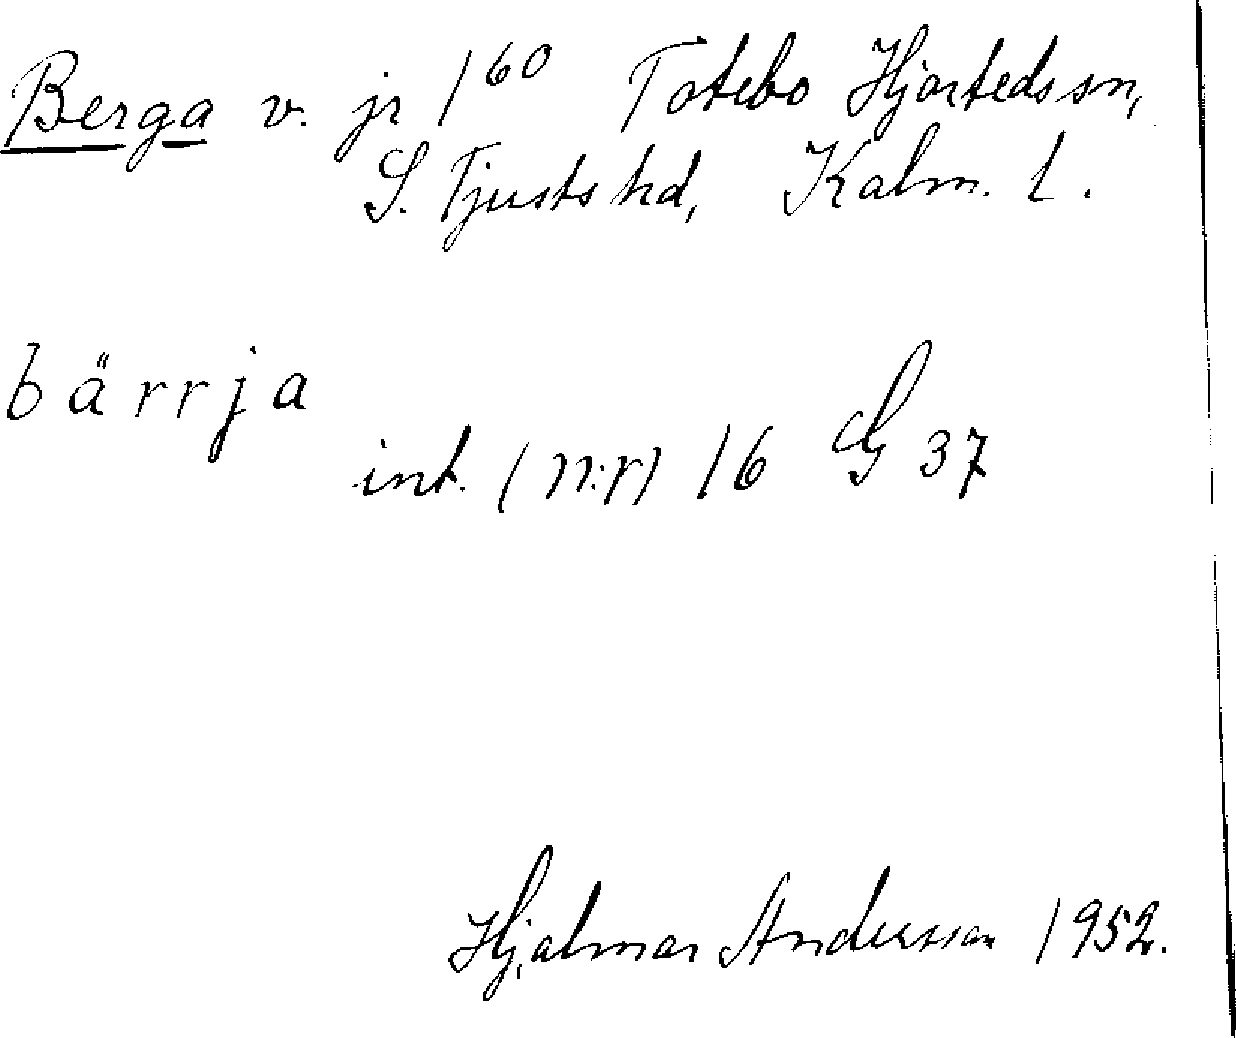 Berga v. jr 1 60 Totebo Hjorteds sn,
S. Tjusts hd, Kalm. L.
bärrja
int. (n:r) 16 G 37
Hjalmar Andersson 1952.